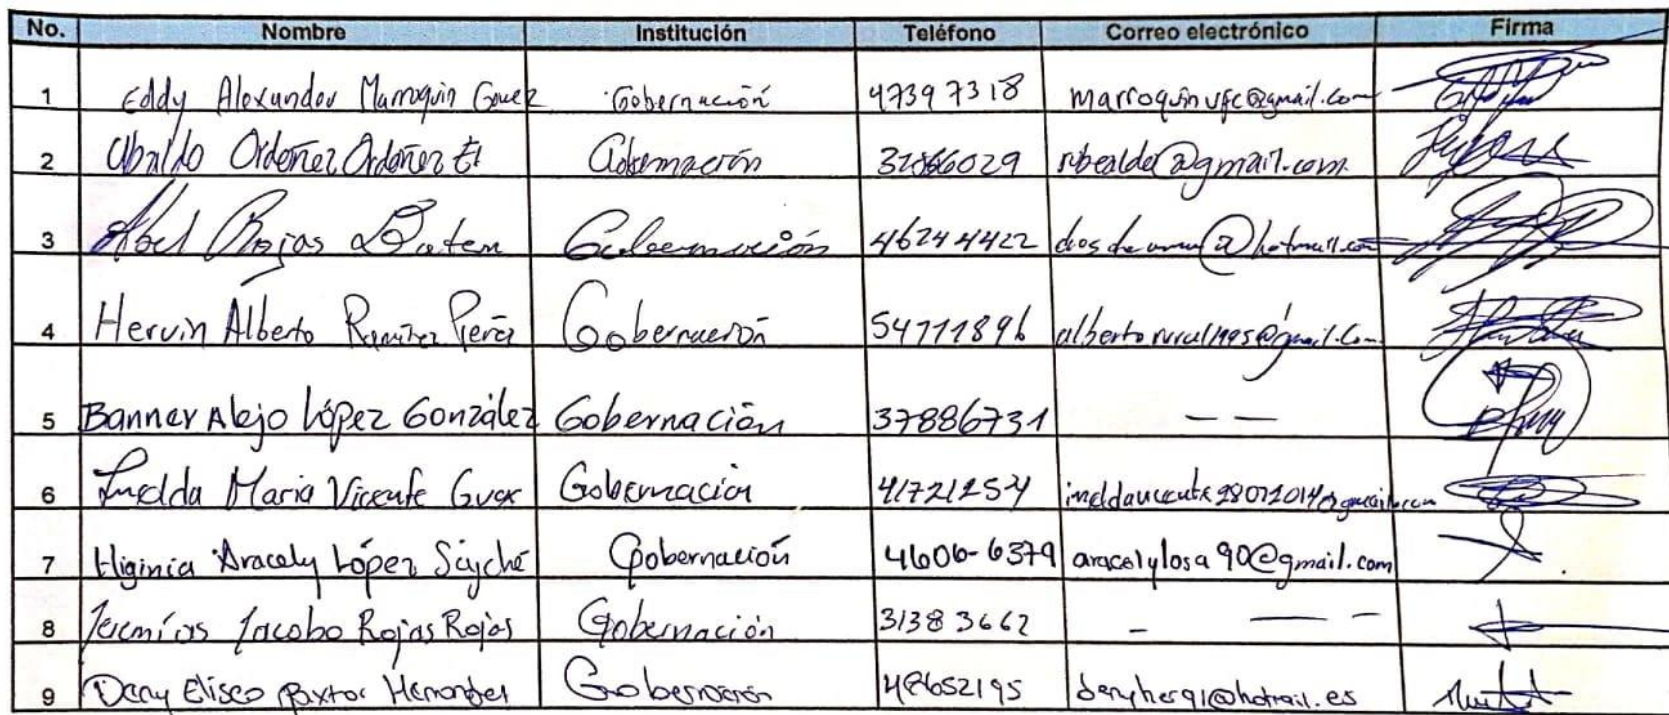 No. Nombre Institución Teléfono Correo electrónico Firma
1 Eddy Alexander Marroquin Gomez Gobernación 47397318 marroquinvfc@gmail.com
2 Ubaldo Ordoñez Ordoñez Gobernación 32866029 ribealde@gmail.com
3 Abel Rojas Baten Gobernación 46244422 @hotmail.com
4 Hervin Alberto Ramírez Pérez Gobernación 54771896 albertorural1995@gmail.com
5 Banner Alejo López González Gobernación 37886731 — —
6 Imelda Maria Vicente Guox Gobernación 41721254 imeldavicente28072014@gmail.com
7 Higinia Aracely López Sáyché Gobernación 4606-6379 aracelylosa90@gmail.com
8 Jeremías Jacobo Rojas Rojas Gobernación 31383662 – — –
9 Deny Eliseo Paxtor Hernandez Gobernación 48652195 denyher91@hotmail.es